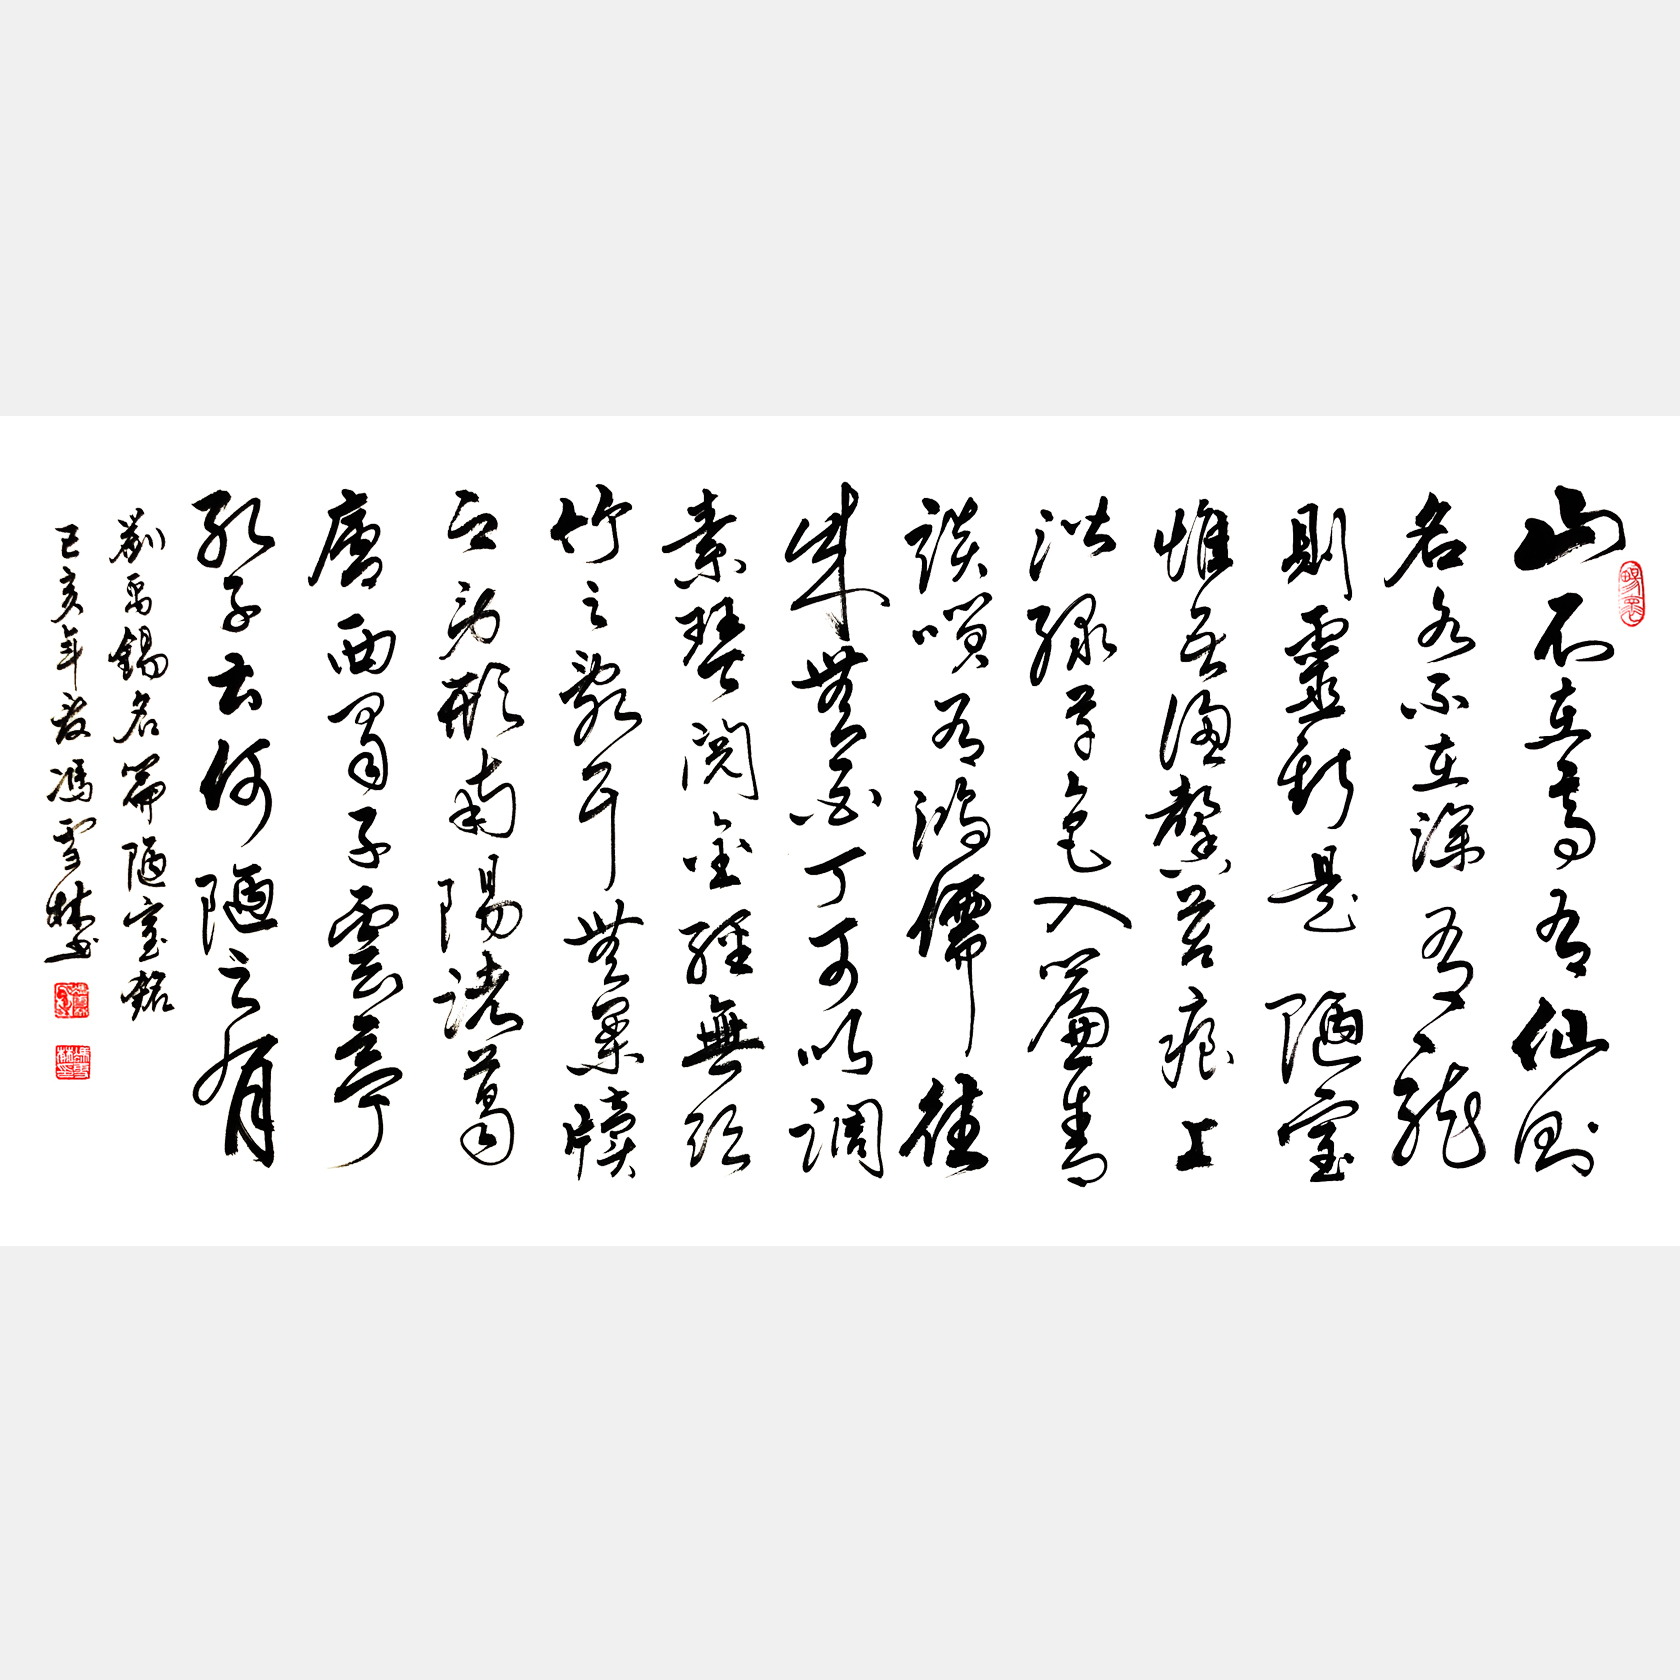 山不在高有仙則
名水不在深有龍
則靈斯是陋室
惟吾德馨苔痕上
階綠草色入簾青
談笑有鴻儒往
來無白丁可以調
素琴閱金經無絲
竹之亂耳無案牘
之勞形南陽諸葛
廬西蜀子雲亭
孔子云何陋之有
劉禹錫名篇陋室銘
己亥年夏馮雪林書